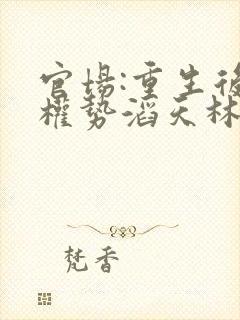 官場:重生後
權勢滔天林
梵香